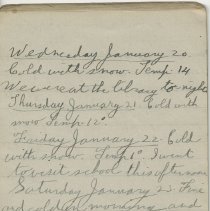 Wednesday January 20
Cold with snow. Temp 14
We were at the library to night
Thursday January 21 Cold with
snow Temp 12°
Friday January 22 Cold
with snow. Temp 1° I went
to visit school this afternoon
Saturday January 23 Fine
and colder morning and